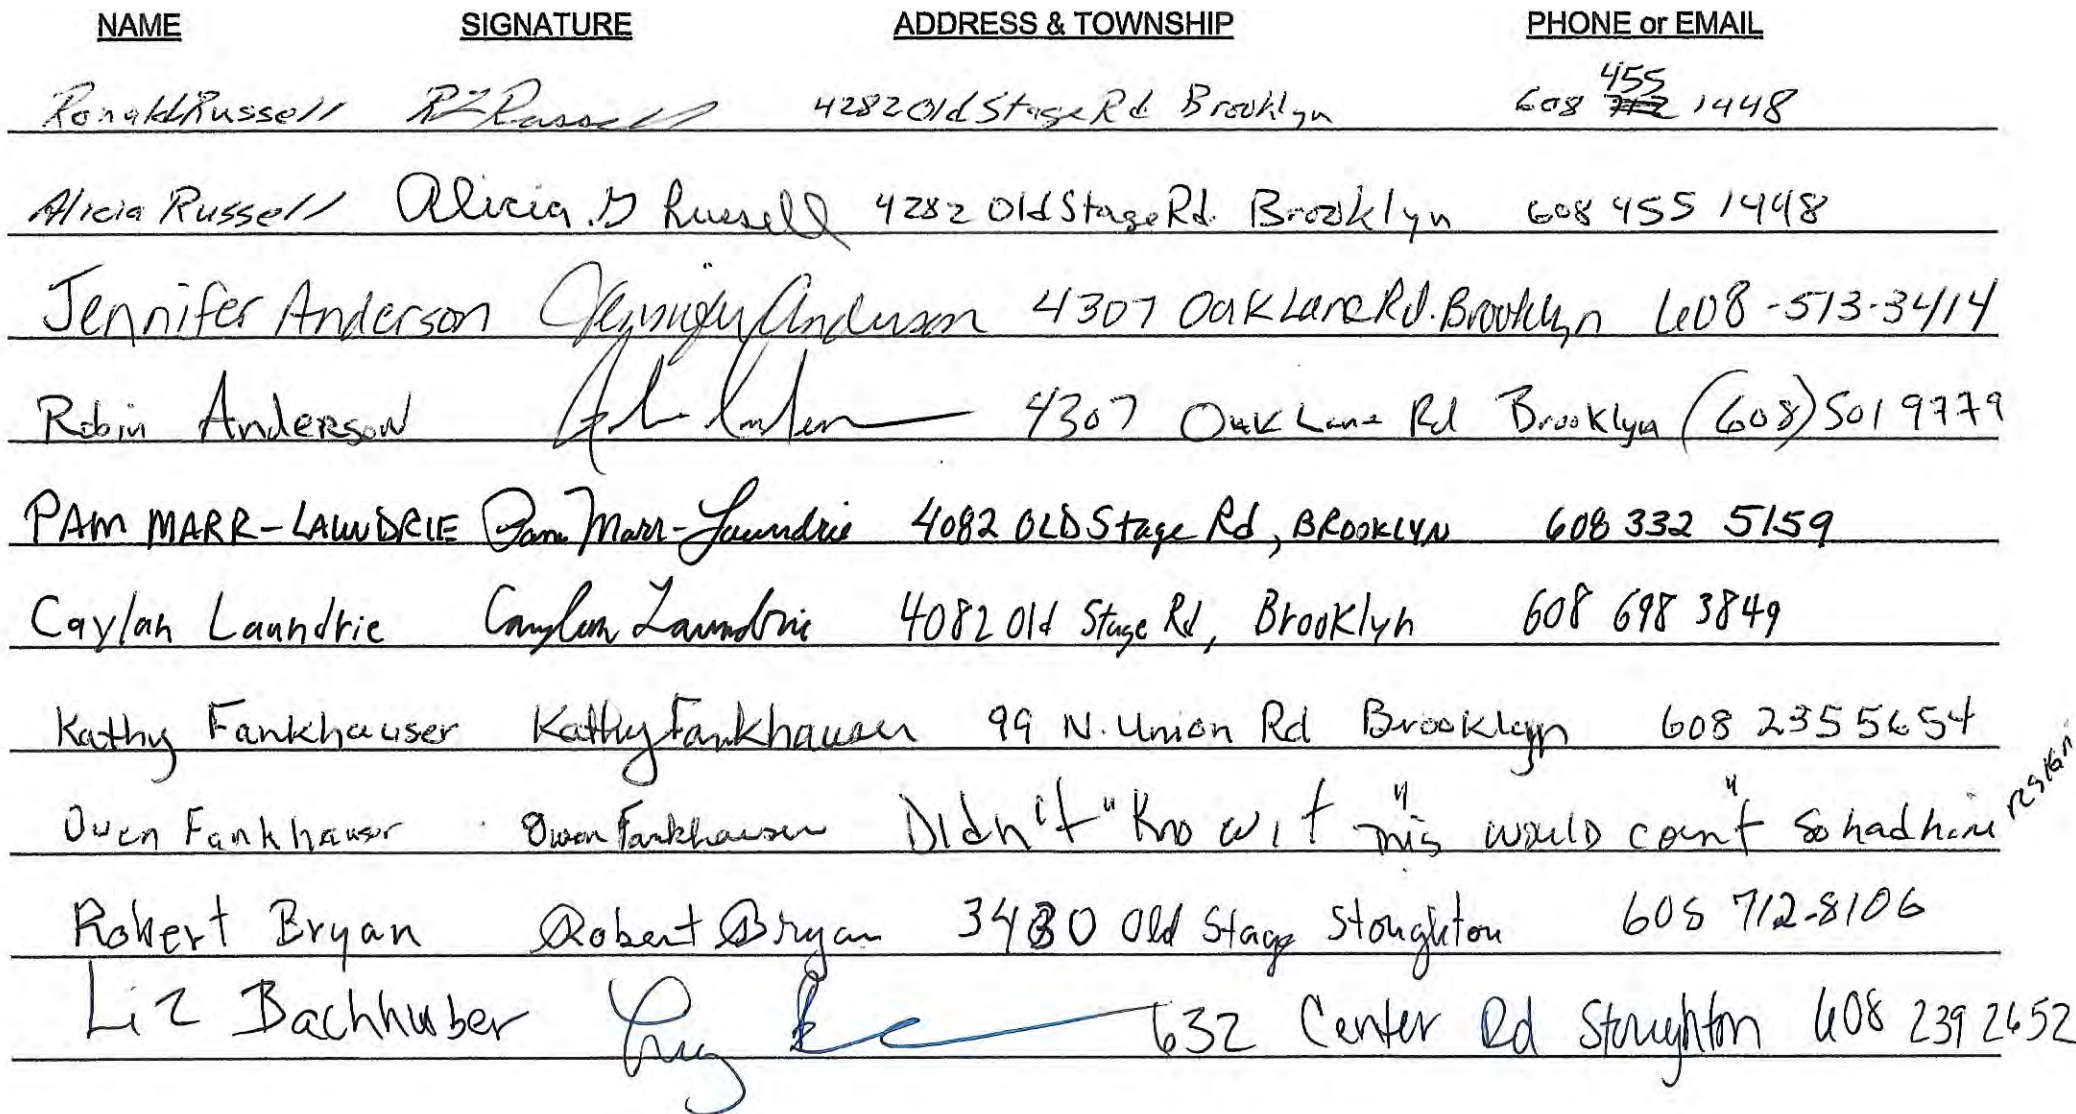 NAME SIGNATURE ADDRESS & TOWNSHIP PHONE or EMAIL
Ronald Russell RL Russell 4282 Old Stage Rd Brooklyn 608 455 1448
Alicia Russell Alicia G Russell 4282 Old Stage Rd. Brooklyn 608 455 1448
Jennifer Anderson Jennifer Anderson 4307 Oak Lane Rd. Brooklyn 608-513-3414
Robin Anderson 4307 Oak Lane Rd Brooklyn (608) 501 9779
PAM MARR-LAUNDRIE Pam Marr-Laundrie 4082 OLD Stage Rd, BROOKLYN 608 332 5159
Caylan Laundrie Caylan Laundrie 4082 Old Stage Rd, Brooklyn 608 698 3849
Kathy Fankhauser Kathy Fankhauser 99 N. Union Rd Brooklyn 608 235 5654
Owen Fankhauser Owen Fankhauser Didn't "Know if "this would count" so had him resign
Robert Bryan Robert Bryan 3480 Old Stage Stoughton 608 712-8106
Liz Bachhuber 632 Center Rd Stoughton 608 239 2652